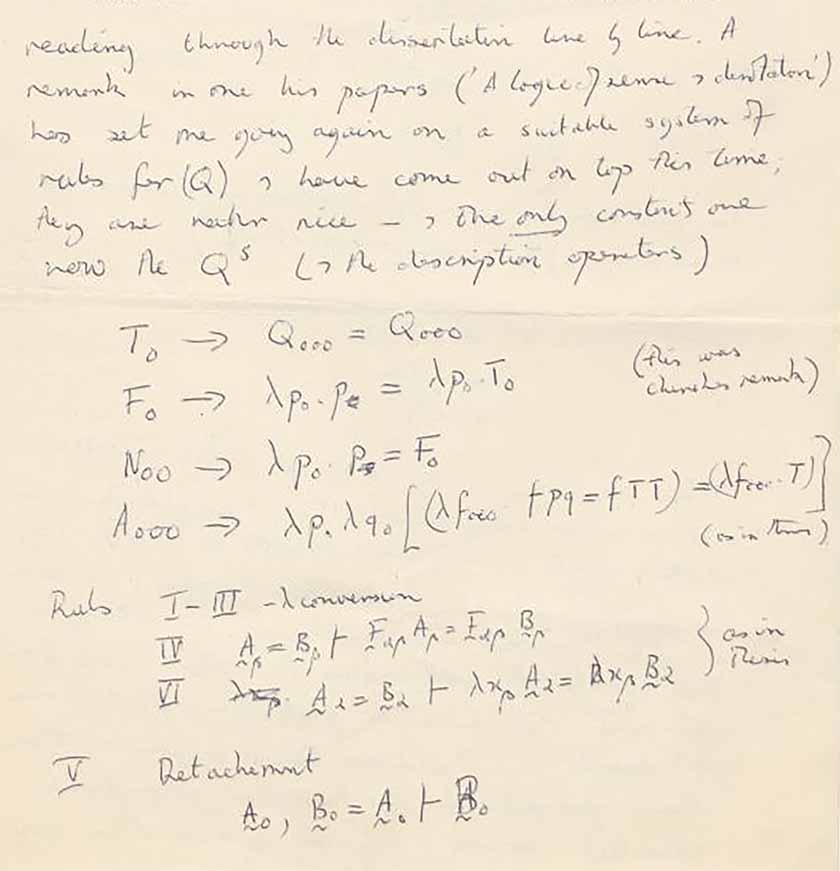 reading through the dissertation line by line. A
remark in one his papers ('A logic of sense & denotation')
has set me going again on a suitable system of
rules for (Q) & have come out on top this time;
they are rather nice – & the only constants are
now the Qs (& the description operators)
T₀ → Q₀₀₀ = Q₀₀₀
(this was
F₀ → λp₀.p₀ = λp₀.T₀
Churches remark)
N₀₀ → λp₀.p₀ = F₀
A₀₀₀ → λp₀λq₀[(λf₀₀₀ fpq = fTT) = (λf₀₀₀.T)]
(as in
Rules I–III – λ conversion
IV A_β = B_β ⊢ F_αβ A_β = F_αβ B_β
as in
Thesis
VI A_α = B_α ⊢ λx_β A_α = λx_β B_α
V Detachement
A₀, B₀ = A₀ ⊢ B₀